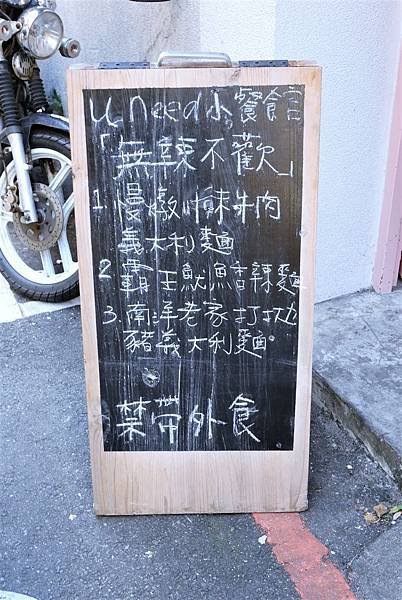 u need小餐館
「無辣不歡」
1. 慢燉川味牛肉
義大利麵
2. 霸王魷魚香辣麵
3. 南洋老家打拋
豬義大利麵。
禁帶外食